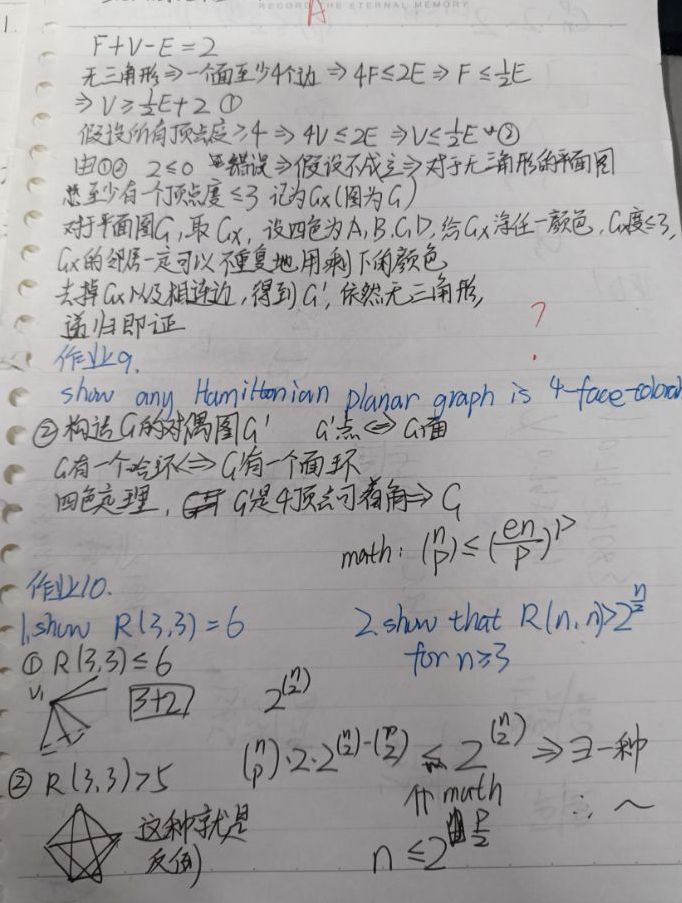 RECORD THE ETERNAL MEMORY
A
1.
F+V-E=2
无三角形⇒一个面至少4个边⇒4F≤2E⇒F≤½E
⇒V≥½E+2 ①
假设所有顶点度≥4⇒4V≤2E⇒V≤½E ②
由①② 2≤0 错误⇒假设不成立⇒对于无三角形的平面图
至少有一个顶点度≤3 记为Gx(图为G)
对于平面图G,取Gx,设四色为A,B,C,D,给Gx涂任一颜色,Gx度≤3,
Gx的邻居一定可以不重复地用剩下的颜色
去掉Gx以及相连边,得到G',依然无三角形,
递归即证
?
作业9.
show any Hamiltonian planar graph is 4-face-colorab
②构造G的对偶图G' G'点⇔G面
G有一个哈环⇔G'有一个面环
四色定理, G是4顶点可着角⇒G
math: (n p)≤(en/p)^p
作业10.
1.show R(3,3)=6
2.show that R(n,n)>2^(n/2)
for n≥3
① R(3,3)≤6
V₁ 3+2 2^(n 2)
(n p)·2·2^((n 2)-(p 2)) ≤ 2^(n 2) ⇒∃一种
② R(3,3)>5
⇑ math ∴ ~
这种就是
反例)
n≤2^(p/2)